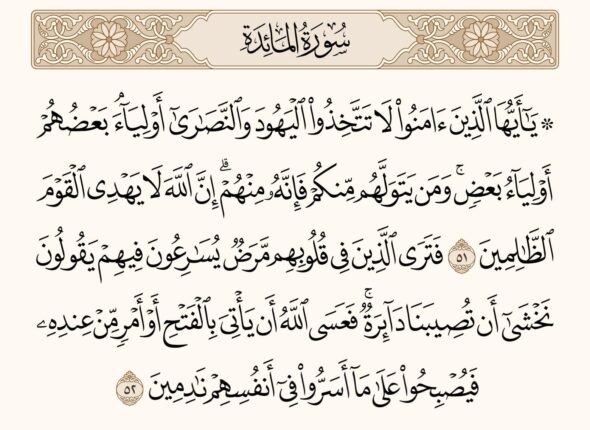 سُورَةُ المَائِدَةِ
* يَٰٓأَيُّهَا ٱلَّذِينَ ءَامَنُوا۟ لَا تَتَّخِذُوا۟ ٱلْيَهُودَ وَٱلنَّصَٰرَىٰٓ أَوْلِيَآءَۘ بَعْضُهُمْ
أَوْلِيَآءُ بَعْضٍۚ وَمَن يَتَوَلَّهُم مِّنكُمْ فَإِنَّهُۥ مِنْهُمْۗ إِنَّ ٱللَّهَ لَا يَهْدِى ٱلْقَوْمَ
ٱلظَّٰلِمِينَ ٥١ فَتَرَى ٱلَّذِينَ فِى قُلُوبِهِم مَّرَضٌ يُسَٰرِعُونَ فِيهِمْ يَقُولُونَ
نَخْشَىٰٓ أَن تُصِيبَنَا دَآئِرَةٌۚ فَعَسَى ٱللَّهُ أَن يَأْتِىَ بِٱلْفَتْحِ أَوْ أَمْرٍ مِّنْ عِندِهِۦ
فَيُصْبِحُوا۟ عَلَىٰ مَآ أَسَرُّوا۟ فِىٓ أَنفُسِهِمْ نَٰدِمِينَ ٥٢